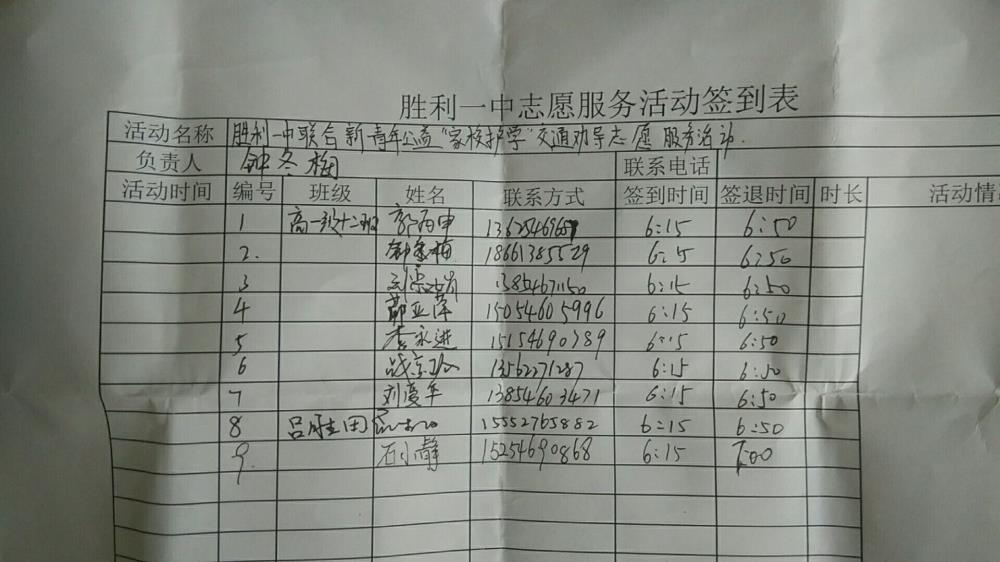 胜利一中志愿服务活动签到表
活动名称 胜利一中联合新青年公益"家校护学"交通劝导志愿服务活动.
负责人 钟冬梅 联系电话
活动时间 编号 班级 姓名 联系方式 签到时间 签退时间 时长 活动情
1 高一级十二班 郭丙申 6:15 6:50
2. 钟冬梅 18661385529 6:15 6:50
3 13854671150 6:15 6:50
4 15054605996 6:15 6:50
5 李永进 15154690789 6:15 6:50
6 13562271287 6:15 6:50
7 刘彦军 13854603471 6:15 6:50
8 15552765882 6:15 6:50
9. 石小静 15254690868 6:15 7:00